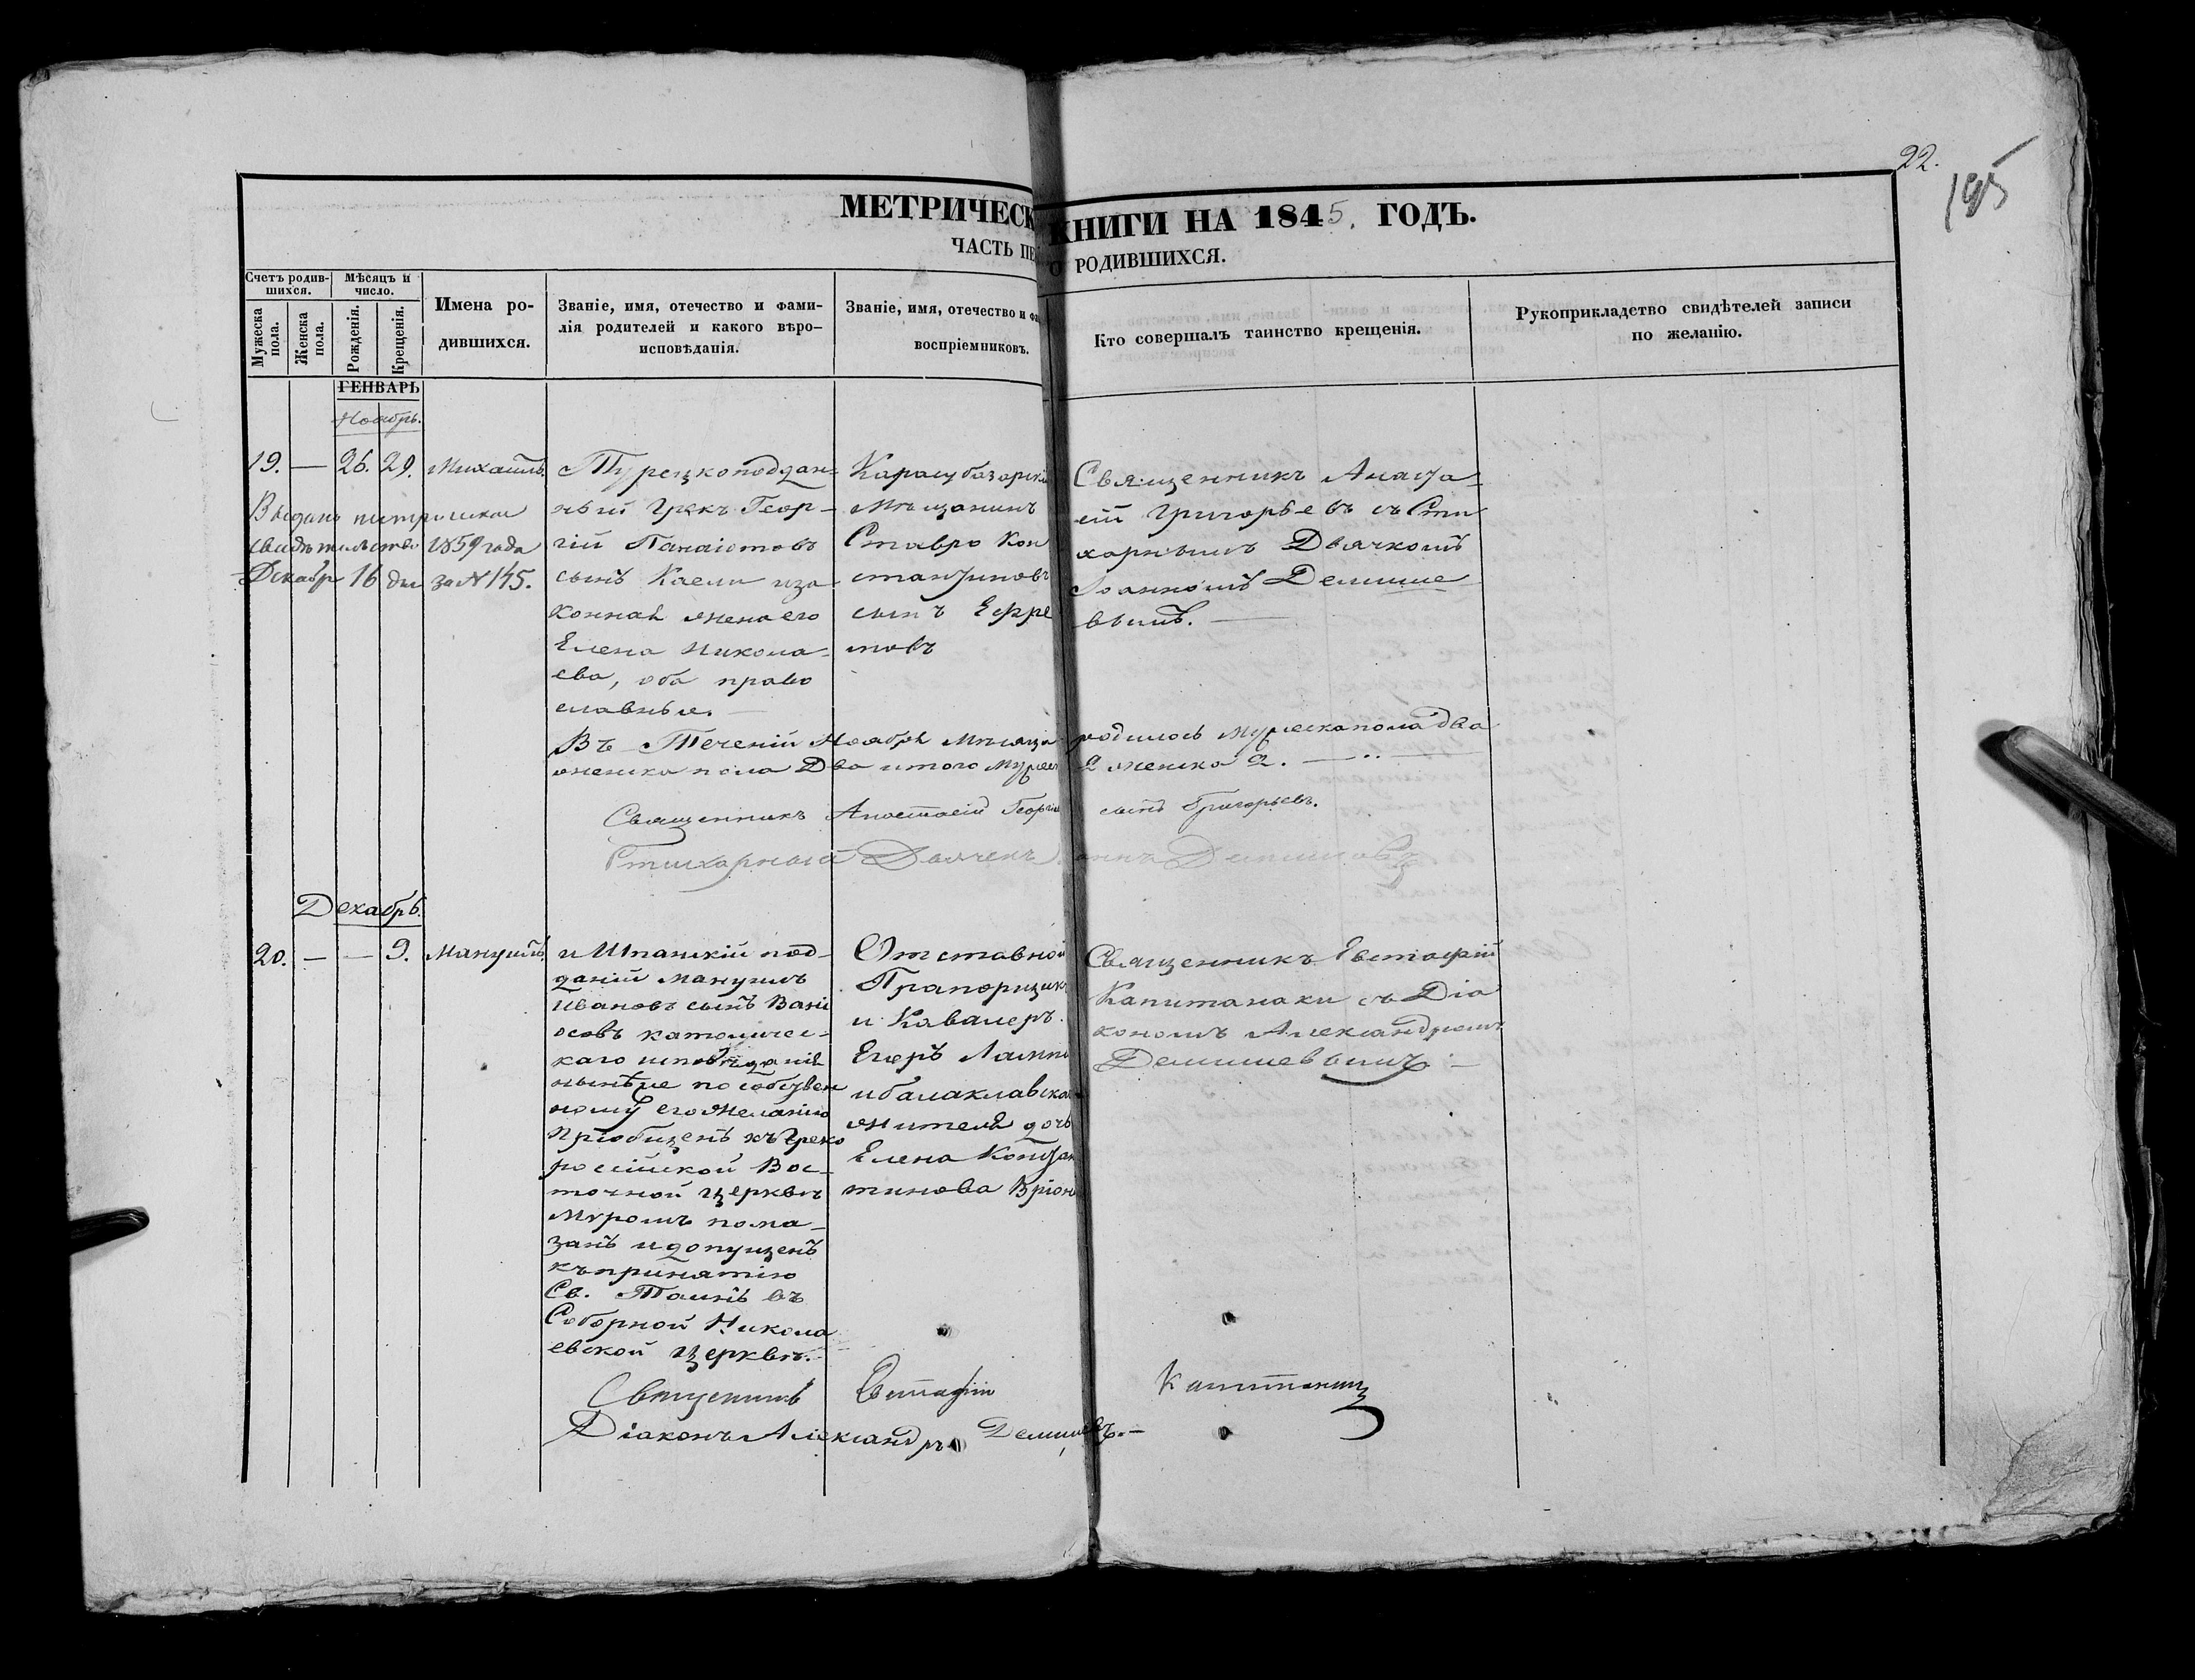 22.
195
МЕТРИЧЕСК КНИГИ НА 1845. ГОДЪ.
ЧАСТЬ ПЕ О РОДИВШИХСЯ.
Счетъ родившихся.
Мужеска пола.
Женска пола.
Мѣсяцъ и число.
Рожденія.
Крещенія.
Имена ро-
дившихся.
Званіе, имя, отечество и фами-
лія родителей и какого вѣро-
исповѣданія.
Званіе, имя, отечество и фа
воспріемниковъ.
Кто совершалъ таинство крещенія.
Рукоприкладство свидѣтелей записи
по желанію.
ГЕНВАРЬ
Ноябрь.
19. — 26. 29. Михаилъ.
Выдано метрическое
свидѣтельство 1859 года
Декабр 16 дня за № 145.
Турецкоподдан-
ный Грекъ Геор-
гій Панаіотовъ
сынъ Каели и за
конная жена его
Елена Никола-
ева, оба право
славные. —
Карасубазарскі
Мѣщанинъ
Ставро Кон
стантиновъ
сынъ Ефре
мовъ
Священникъ Анаста-
сій Григорьевъ съ Сти
харнымъ Дьячкомъ
Іоанномъ Демише
вымъ. —
Въ Теченіи Ноября Мѣсяца родилось мужеска пола два
женска пола Два итого мужес 2 женска 2. —
Священникъ Анастасій Георгіе сынъ Григорьевъ.
Стихарный Дьячекъ аннъ Демишевъ
Декабрь.
20. — — 9. Мануилъ.
и Шпанскій под-
даній Мануилъ
Ивановъ сынъ
осовъ католичес-
каго исповѣданія
нынѣже по собствен
ному его желанію
пріобщенъ къ Греко
россійской Вос-
точной церквѣ
Муромъ пома-
занъ и допущенъ
къ принятію
Св. Таинъ въ
Соборной Никола
евской церквѣ.
Отставной
Прапорщикъ
и Кавалеръ
Егоръ
и балаклавска
жителя дочь
Елена Констан
тинова
Священникъ Евстафій
Капитанаки съ Діа
кономъ Александромъ
Демишевымъ —
Священникъ Евстафій Капитанаки
Діаконъ Александръ Демишевъ. —